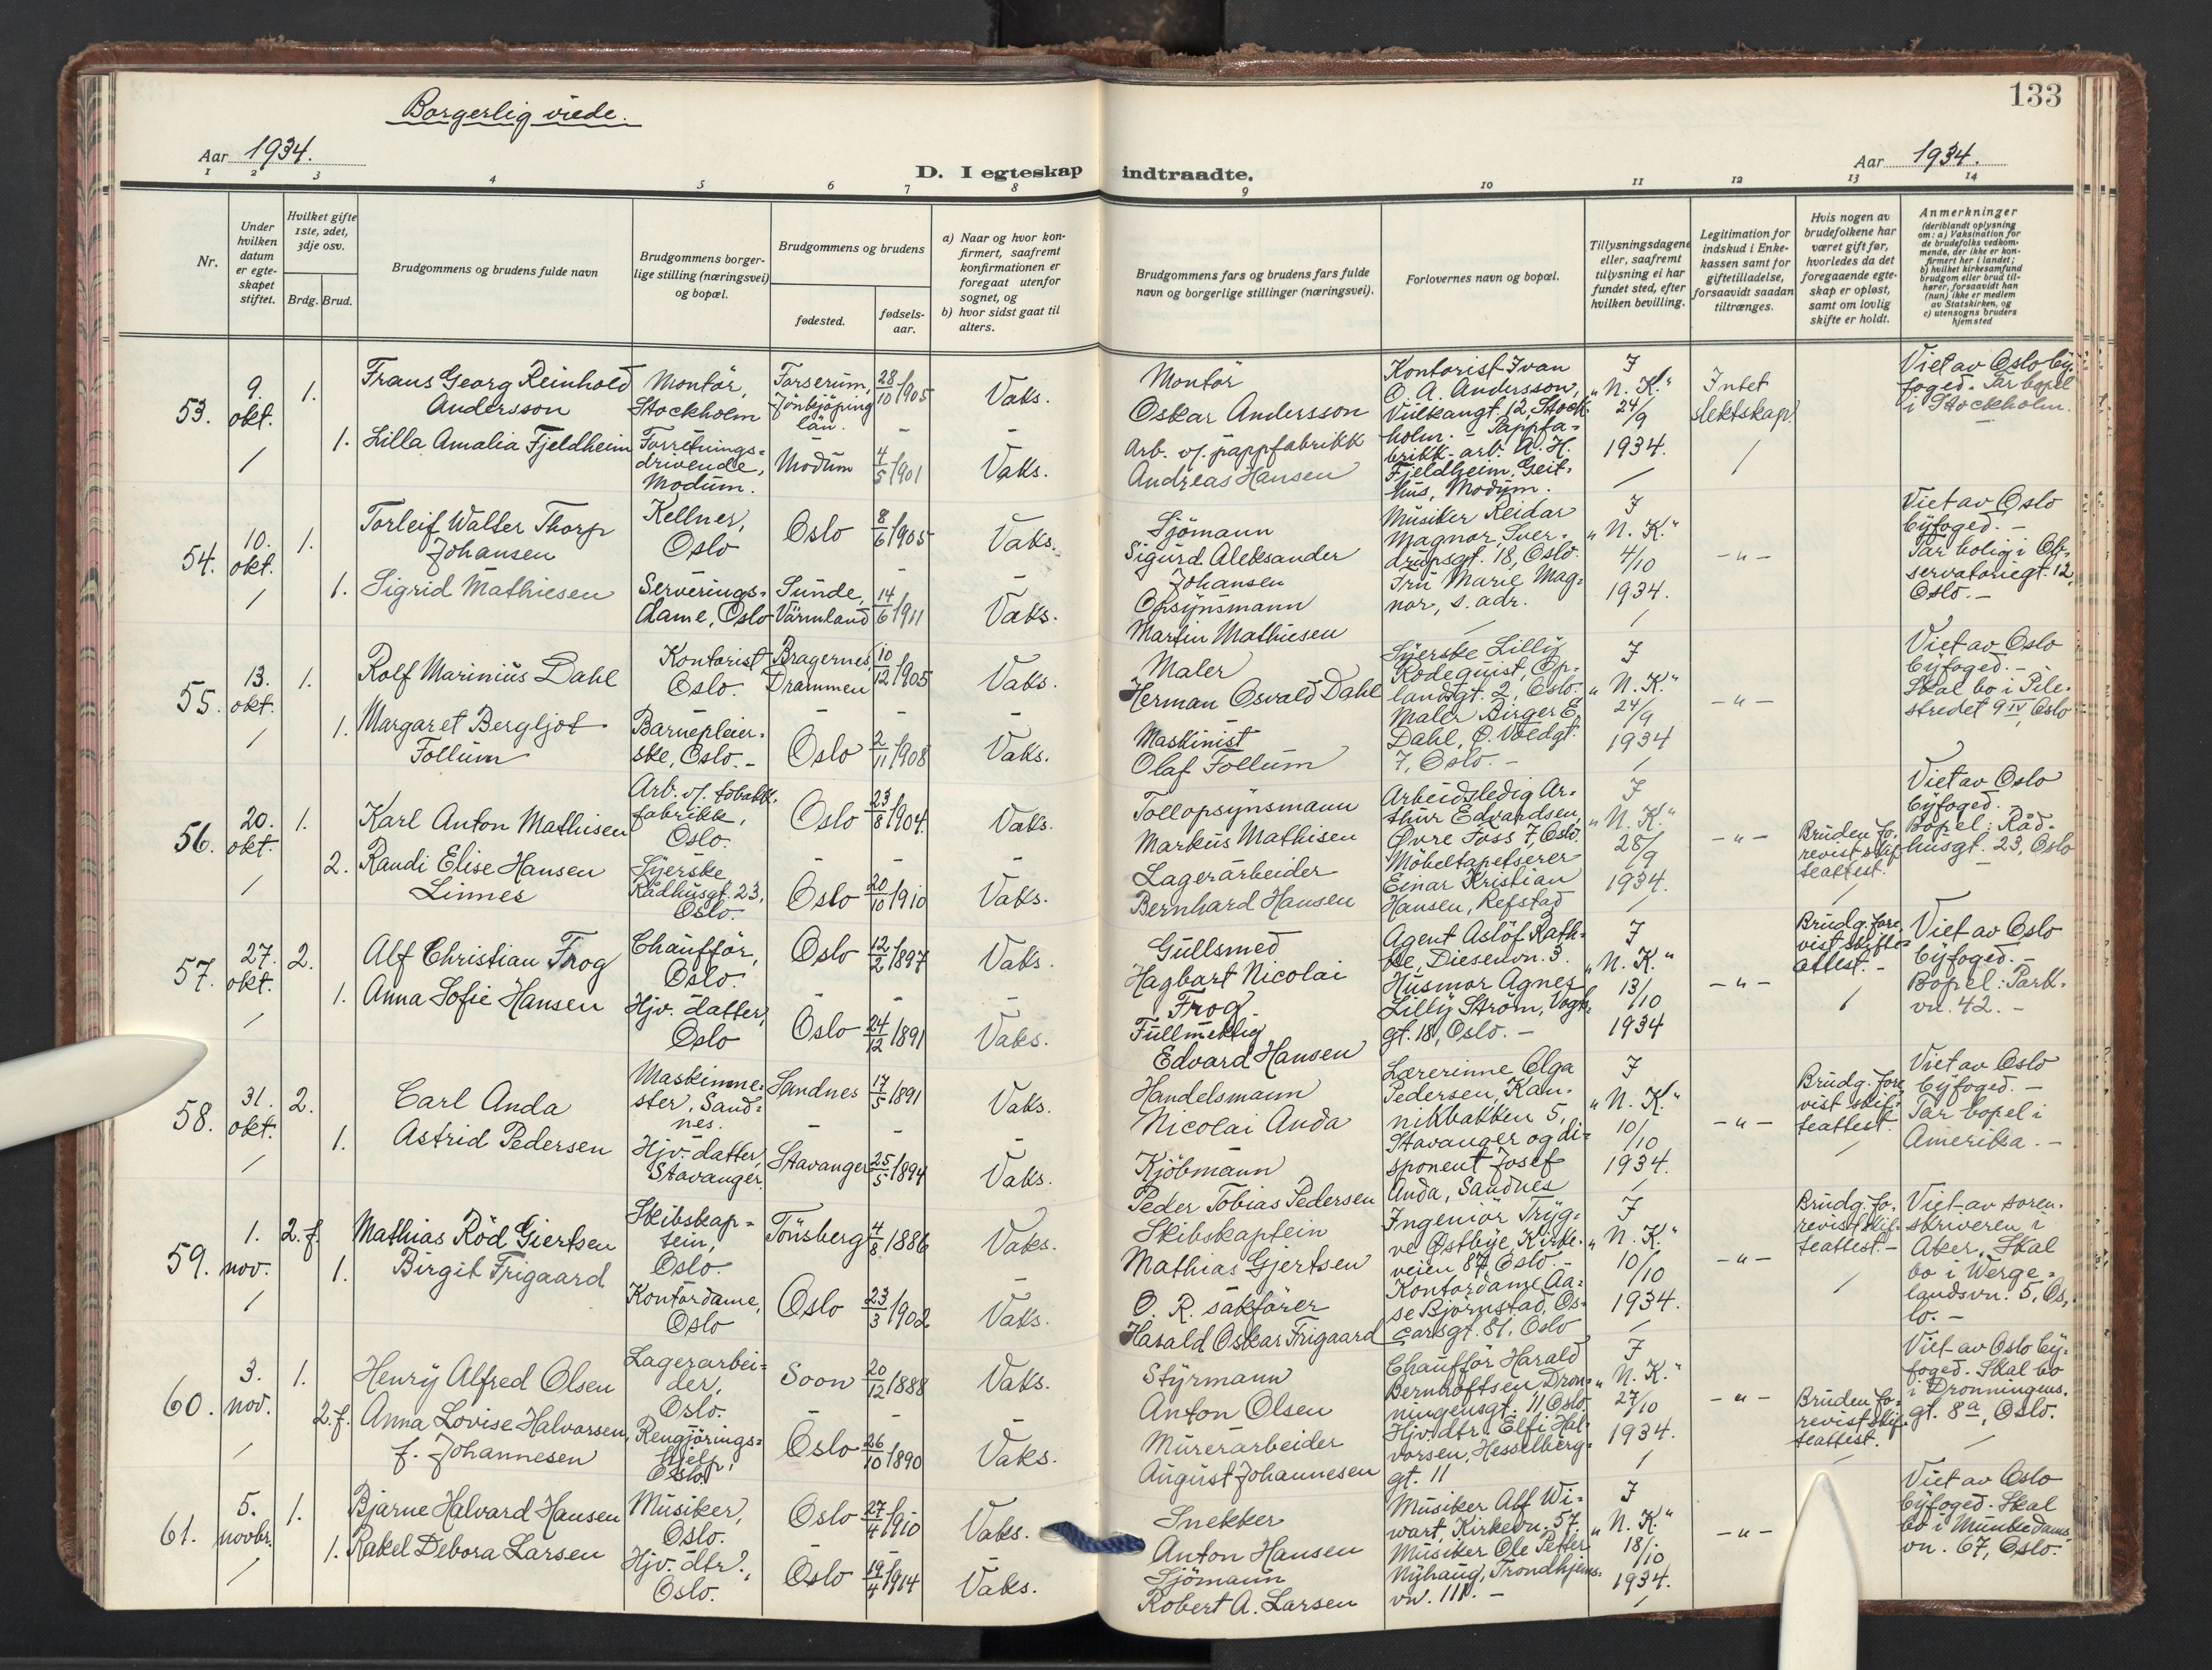 Borgerlig viede.
133
Aar 1934.
D. I egteskap indtraadte.
Aar 1934.
1 2 3 4 5 6 7 8 9 10 11 12 13 14
Nr.
Under hvilken datum er egteskapet stiftet.
Hvilket gifte 1ste, 2det, 3dje osv.
Brdg. Brud.
Brudgommens og brudens fulde navn
Brudgommens borgerlige stilling (næringsvei) og bopæl.
Brudgommens og brudens
fødested.
fødselsaar.
a) Naar og hvor konfirmert, saafremt konfirmationen er foregaat utenfor sognet, og
b) hvor sidst gaat til alters.
Brudgommens fars og brudens fars fulde navn og borgerlige stillinger (næringsvei).
Forlovernes navn og bopæl.
Tillysningsdagene eller, saafremt tillysning ei har fundet sted, efter hvilken bevilling.
Legitimation for indskud i Enkekassen samt for giftetilladelse, forsaavidt saadan tiltrænges.
Hvis nogen av brudefolkene har været gift før, hvorledes da det foregaaende egteskap er opløst, samt om lovlig skifte er holdt.
Anmerkninger (deriblandt oplysning om: a) Vaksination for de brudefolks vedkommende, der ikke er konfirmert her i landet; b) hvilket kirkesamfund brudgom eller brud tilhører, forsaavidt han (hun) ikke er medlem av Statskirken, og c) utensogns bruders hjemsted
53. 9. okt. 1.
Frans Georg Reinhold Andersson
Montör, Stockholm
Torserum, Jönkjöping län.
28/10 1905
Vaks.
Montör
Oskar Andersson
Kontorist Ivan O. A. Andersson, Vulkangt. 12, Stockholm. - Pappfabrikk-arb. A. H. Fjeldheim, Geithus, Modum.
I "N. K." 24/9 1934.
Intet slektskap.
Viet av Oslo byfoged. Tar bopel i Stockholm.
1. Lilla Amalia Fjeldheim
Forretningsdrivende, Modum.
Modum
4/5 1901
Vaks.
Arb. v/. pappfabrikk
Andreas Hansen
54. 10. okt. 1.
Torleif Walter Thorp Johansen
Kellner, Oslo
Oslo
8/6 1905
Vaks.
Sjömann
Sigurd Aleksander Johansen
Musiker Reidar Magnor, Sverdrupsgt. 18, Oslo. Fru Marie Magnor, s. adr.
I "N. K." 4/10 1934.
- " -
Viet av Oslo byfoged. - Tar bolig i Observatoriegt. 12, Oslo. -
1. Sigrid Mathiesen
Serveringsdame, Oslo
Sunde, Värmland
14/6 1911
Vaks.
Opsynsmann
Martin Mathiesen
55. 13. okt. 1.
Rolf Marinius Dahl
Kontorist Oslo.
Bragernes, Drammen
10/12 1905
Vaks.
Maler
Herman Osvald Dahl
Syerske Lilly Rodequist, Oplandsgt. 2, Oslo. - Maler Birger E. Dahl, O. Voldgt. 7, Oslo. -
I "N. K." 24/9 1934
- " -
Viet av Oslo byfoged. - Skal bo i Pilestredet 9 IV, Oslo
1. Margaret Bergljot Follum
Barnepleierske, Oslo. -
Oslo
2/11 1908
Vaks.
Maskinist
Olaf Follum
56. 20. okt. 1.
Karl Anton Mathisen
Arb. v/. tobakkfabrikk, Oslo.
Oslo
23/8 1904.
Vaks.
Tollopsynsmann
Markus Mathisen
Arbeidsledig Arthur Edvardsen, Øvre Foss 7, Oslo. Möbeltapetserer Einar Kristian Hansen, Refstad
I "N. K." 28/9 1934.
- " -
Bruden forevist skifteattest.
Viet av Oslo byfoged. - Bopel: Rådhusgt. 23, Oslo
2. Randi Elise Hansen Linnes
Syerske Rådhusgt. 23, Oslo.
Oslo
20/10 1910
Vaks.
Lagerarbeider
Bernhard Hansen
57. 27. okt. 2.
Alf Christian Frog
Chaufför, Oslo.
Oslo
12/2 1897
Vaks.
Gullsmed
Hagbart Nicolai Frog.
Agent Aslöf Rathke, Diesenvn. 3. Husmor Agnes Lilly Ström, Vogtsgt. 18, Oslo. -
I "N. K." 13/10 1934
- " -
Brudg. forevist skifteattest. -
Viet av Oslo byfoged. - Bopel: Parkvn. 42. -
1. Anna Sofie Hansen
Hjv. datter, Oslo
Oslo
24/12 1891
Vaks.
Fullmektig
Edvard Hansen
58. 31. okt. 2.
Carl Anda
Maskinmester, Sandnes.
Sandnes
17/5 1891
Vaks.
Handelsmann
Nicolai Anda
Lærerinne Olga Pedersen, Kannikbakken 5, Stavanger og disponent Josef Anda, Sandnes
I "N. K." 10/10 1934.
- " -
Brudg. forevist skifteattest.
Viet av Oslo byfoged. - Tar bopel i Amerika. -
1. Astrid Pedersen
Hjv. datter, Stavanger.
Stavanger
25/5 1894
Vaks.
Kjöbmann
Peder Tobias Pedersen
59. 1. nov. 2. f.
Mathias Röd Giertsen
Skibskaptein, Oslo.
Tönsberg
4/8 1886
Vaks.
Skibskaptein
Mathias Gjertsen
Ingeniör Trygve Østbye, Kirkeveien 87, Oslo. - Kontordame Aase Björnstad, Oscarsgt. 81, Oslo
I "N. K." 10/10 1934.
- " -
Brudg. forevist skifteattest. -
Viet av sorenskriveren i Aker. Skal bo i Wergelandsvn. 5, Oslo. -
1. Birgit Frigaard
Kontordame, Oslo
Oslo
23/3 1902
Vaks.
O. R. sakförer
Harald Oskar Frigaard
60. 3. nov. 1.
Henry Alfred Olsen
Lagerarbeider, Oslo.
Soon
20/12 1888
Vaks.
Styrmann
Anton Olsen
Chauffför Harald Bernhoftsen Dronningensgt. 11, Oslo. Hjv. dtr. Elfi Halvorsen, Hesselberggt. 11
I "N. K." 27/10 1934.
- " -
Bruden forevist skifteattest.
Viet av Oslo byfoged. Skal bo i Dronningens.gt. 8a, Oslo.
2. f. Anna Lovise Halvorsen, f. Johannesen
Rengjöringshjelp, Oslo
Oslo
26/10 1890
Vaks.
Murerarbeider
August Johannesen
61. 5. novbr. 1.
Bjarne Halvard Hansen
Musiker, Oslo.
Oslo
27/4 1910
Vaks.
Snekker
Anton Hansen
Musiker Alf Wiwart, Kirkevn. 57. Musiker Ole Petter Nyhaug, Trondhjemsvn. 111. -
I "N. K." 18/10 1934.
- " -
Viet av Oslo byfoged. Skal bo i Munkedamsvn. 67, Oslo.
1. Rakel Debora Larsen
Hjv. dtr., Oslo.
Oslo
19/4 1914
Vaks.
Sjömann
Robert A. Larsen